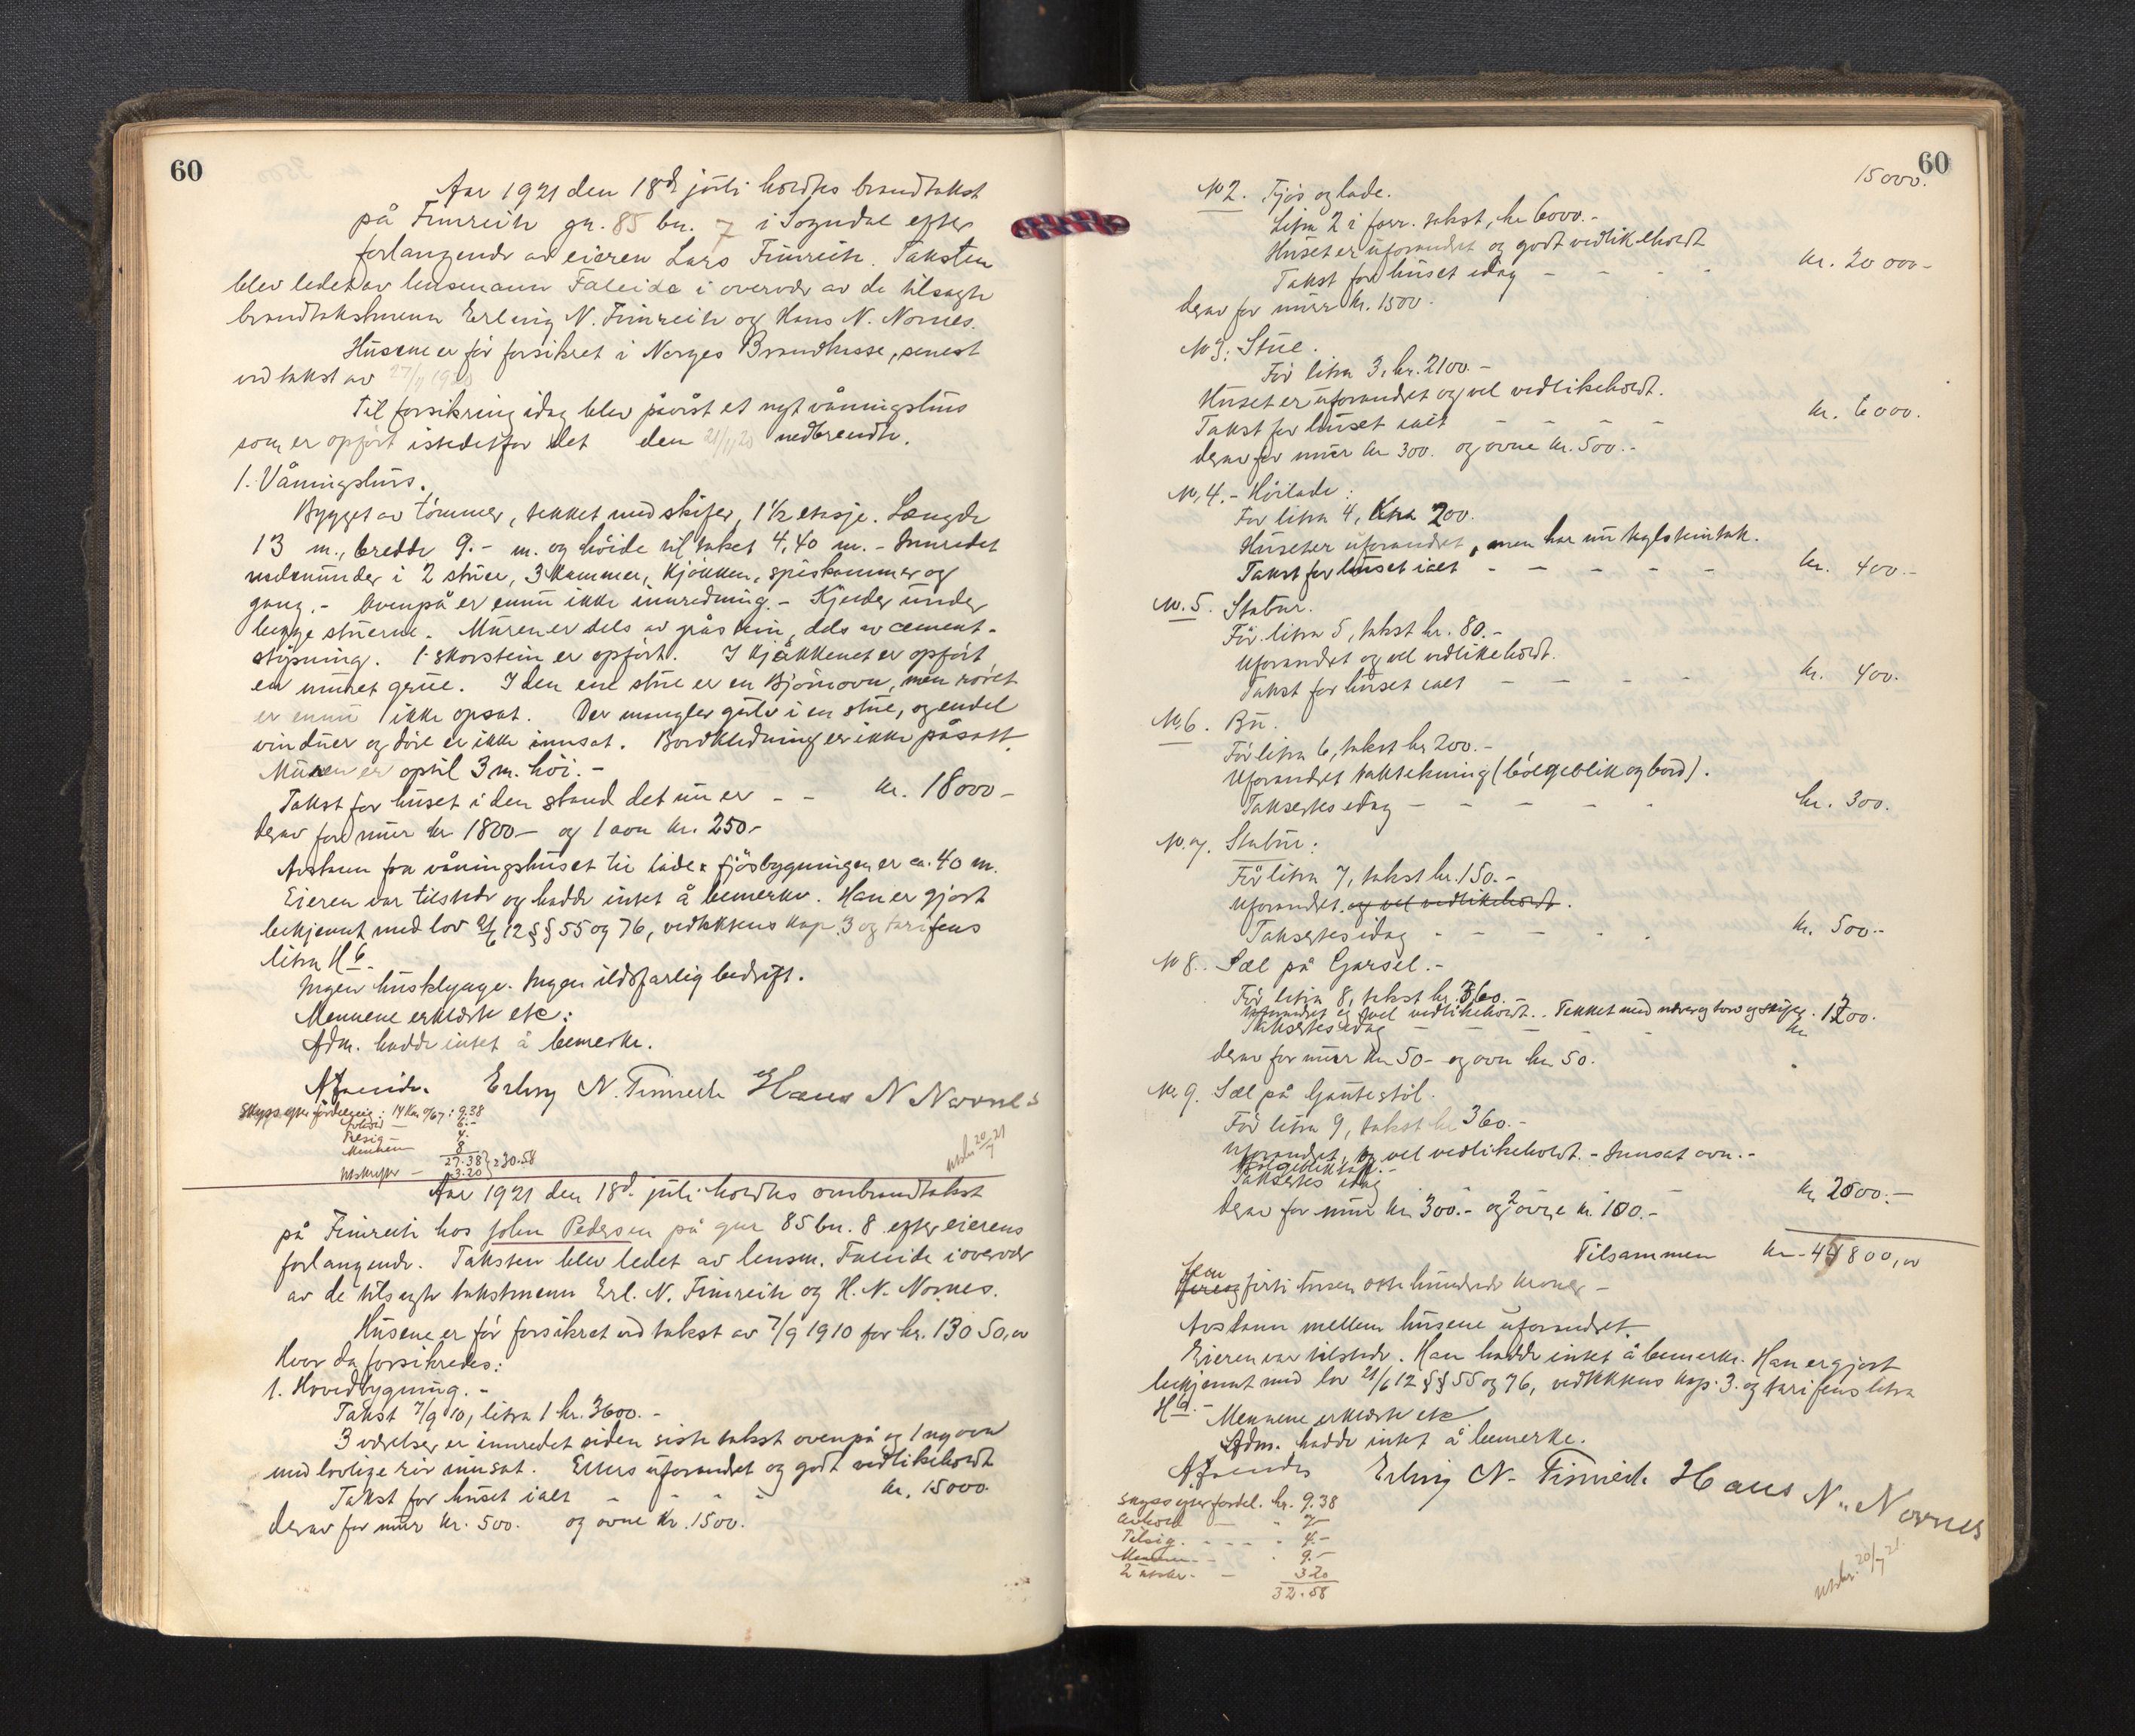 60
Aar 1921 den 18de juli holdtes brandtakst
på Fimreite gn. 85 bn. 7 i Sogndal efter
forlangende av eieren Lars Fimreite. Taksten
blev ledet av lensmann Faleide i overvær av de tilsagte
brandtakstmenn Erling N. Fimreite og Hans N. Nornes.
Husene er før forsikret i Norges Brandkasse, senest
ved takst av 27/11 1920
Til forsikring idag blev påvist et nyt våningshus
som er opført istedetfor det den 21/11 20 nedbrendte.
1. Våningshus.
Bygget av tømmer, tekket med skifer, 1½ etasje. Længde
13 m., bredde 9.- m. og høide til taket 4,40 m. - Innredet
nedenunder i 2 stuer, 3 kammer, kjøkken, spiskammer og
gang. - Ovenpå er ennu ikke innredning. - Kjelder under
begge stuerne. Muren er dels av gråstein, dels av cement-
støpning. 1 skorstein er opført. I kjøkkenet er opført
en muret grue. I den ene stue er en Bjørnovn, men røret
er ennu ikke opsat. Der mangler gulv i en stue, og endel
vinduer og døre er ikke innsat. Bordklædning er ikke påsatt.
Muren er optil 3 m. høi. -
Takst for huset i den stand det nu er - - kr. 18000 -
derav for mur kr 1800 - og 1 ovn kr. 250.-
Avstann fra våningshuset til lade & fjøsbygningen er ca. 40 m.
Eieren var tilstede og hadde intet å bemerke. Han er gjort
bekjennt med lov 21/6 12 §§ 55 og 76, vedtektens kap. 3 og tarifens
litra H 6.
Ingen husklynge. Ingen ildsfarlig bedrift.
Mennene erklærte etc:
Adm. hadde intet å bemerke.
A Faleide. Erling N. Fimreite Hans N Nornes
Skyss efter fordeling: 14 km. à /67: 9.38
Avhold — 6.-
Tilsig — 4.-
Mennene 8
27.38 } 30.58
Utskrifter — 3.20
utskr. 20/7 21
Aar 1921 den 18de juli holdtes ombrandtakst
på Fimreite hos John Pedersen på gnr 85 bn. 8 efter eierens
forlangende. Taksten blev ledet av lensm. Faleide i overvær
av de tilsagte takstmenn Erl. N. Fimreite og H. N. Nornes.
Husene er før forsikret ved takst av 7/9 1910 for kr. 13050,00
Hvor da forsikredes:
1. Hovedbygning. -
Takst 7/9 10, litra 1 kr. 3600. -
3 værelser er innredet siden siste takst ovenpå og 1 ny ovn
med lovlige rør innsat. Ellers uforandret og godt vedlikeholdt
Takst for huset ialt - - - - kr. 15000.
derav for mur kr. 500. og ovne kr. 1500.
60
15000.
No 2. Fjøs og lade.
Litra 2 i forr. takst, kr 6000.-
Huset er uforandret og godt vedlikeholdt
Takst for huset idag - - - - kr. 20 000 -
derav for mur kr. 1500.
No 3. Stue.
Før litra 3, kr. 2100. -
Huset er uforandret og vel vedlikeholdt.
Takst for huset ialt - - - - kr. 6000.
derav for mur kr 300. og ovne kr. 500. -
No. 4. - Høilade:
Før litra 4, kr 200.
Huset er uforandret, men har nu teglsteintak.
Takst for huset ialt - - - - - kr. 400. -
No. 5. Stabur.
Før litra 5, takst kr. 80. -
Uforandret og vel vedlikeholdt.
Takst for huset ialt - - - - kr. 400.
No. 6. Bu.
Før litra 6, takst kr 200. -
Uforandret taktekning (bølgeblik og bord).
Taksertes idag - - - - - kr. 300.
No. 7. Stabur:
Før litra 7, takst kr. 150. -
Uforandret og vel vedlikeholdt.
Taksertes idag - - - - - kr. 500. -
No 8. Sæl på Garsel. -
Før litra 8, takst kr. 360.
Uforandret og vel vedlikeholdt. Tekket med never og torv og skifer.
Taksertes idag - - - - kr 1200.
derav for mur kr 50 - og ovn kr. 50.
No. 9. Sæl på Gautestøl.
Før litra 9, takst kr 360. -
Uforandret, og vel vedlikeholdt. - Innsat ovn. -
Bølgebliktak. -
Taksertes idag - - - - kr 2000. -
derav for mur kr. 300. - og 2 ovne kr. 100. -
Tilsammen kr. 45800,00
fem
fire og firti tusen otte hundrede kroner -
Avstann mellem husene uforandret.
Eieren var tilstede. Han hadde intet å bemerke. Han er gjort
bekjennt med lov 21/6 12 §§ 55 og 76, vedtektens kap. 3. og tarifens litra
H 6. -
Mennene erklærte etc
Adm. hadde intet å bemerke.
A Faleide Erling N. Fimreite Hans N. Nornes
Skyss efter fordel. kr. 9.38
Avhold — - 7 -
Tilsig. - - - - 4. -
Mennene - - - 9. -
2 utskr. - — 3.20
32.58
utskr. 20/7 21.